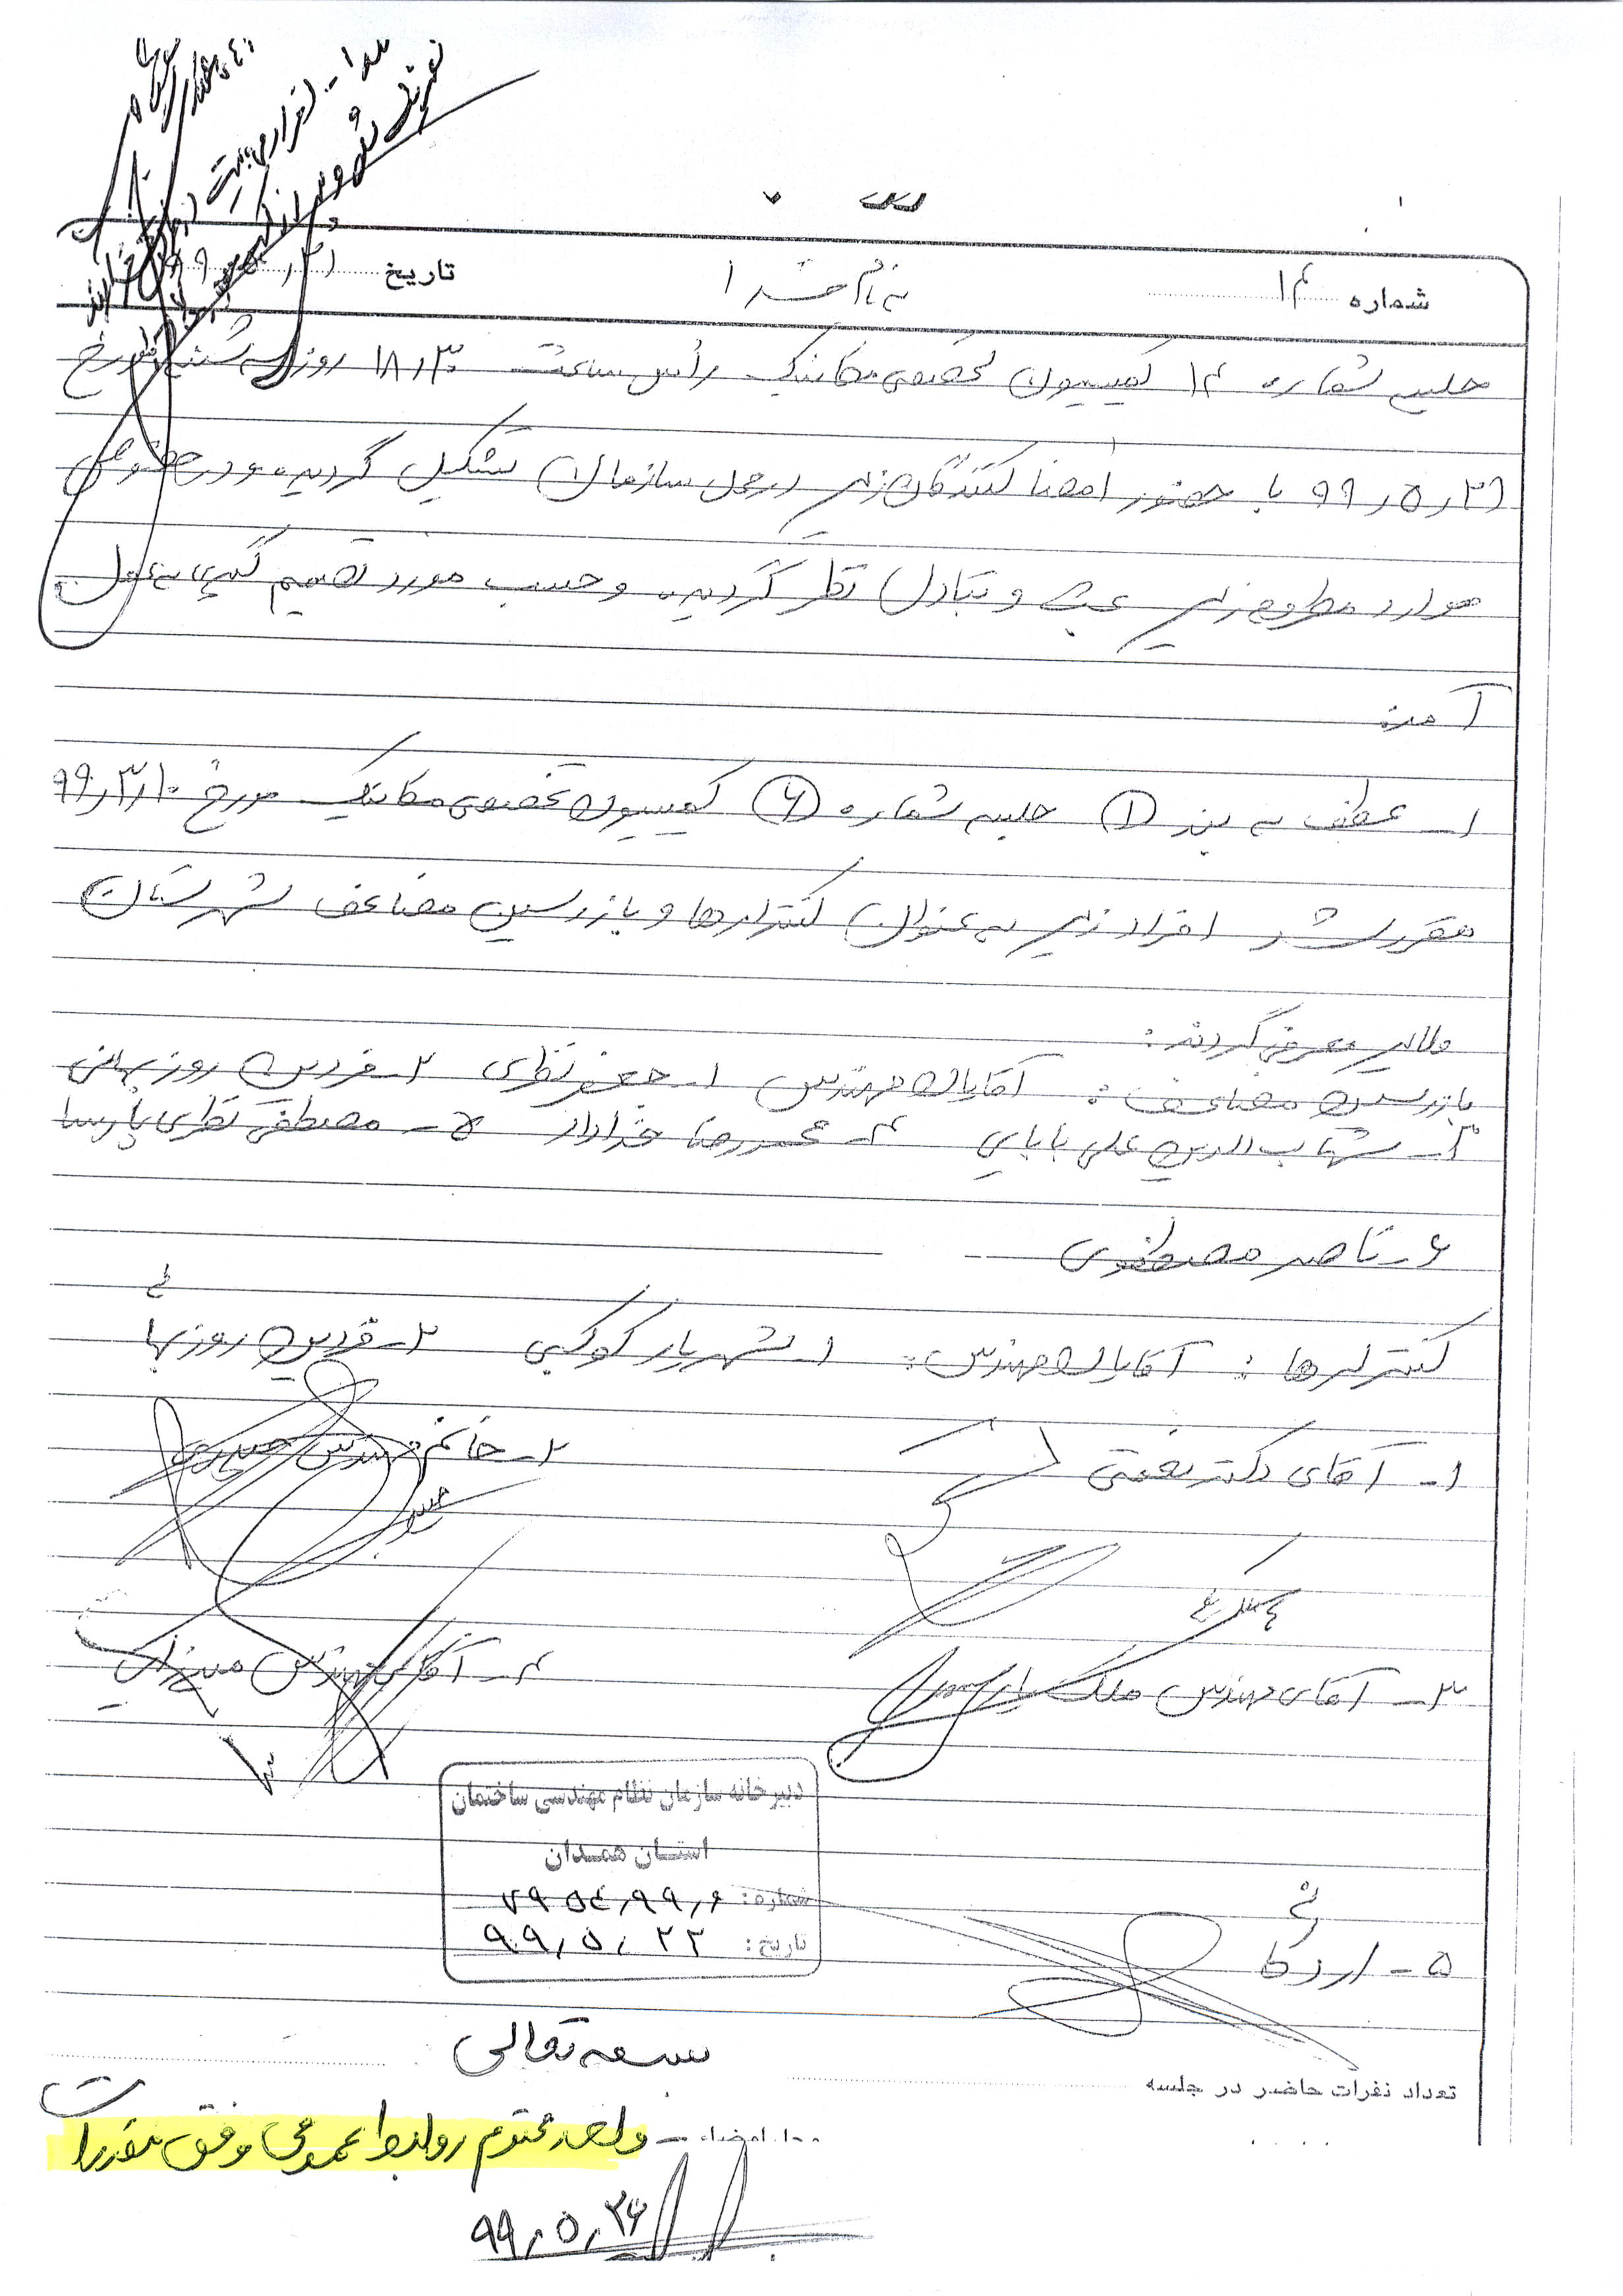 شماره ۱۴
به نام خدا
تاریخ ۹۹/۵/۲۱
جلسه شماره ۱۴ کمیسیون تخصصی مکانیک رأس ساعت ۱۸/۳۰ روز سه شنبه مورخ
۹۹/۵/۲۱ با حضور امضا کنندگان زیر در محل سازمان تشکیل گردید. و در خصوص
موارد مطروحه زیر بحث و تبادل نظر گردید. و حسب مورد تصمیم گیری به عمل
آمد.
۱- عطف به بند ۱ جلسه شماره ۶ کمیسیون تخصصی مکانیک مورخ ۹۹/۳/۱۰
مقرر شد افراد زیر به عنوان کنترلرها و بازرسین مضاعف شهرستان
ملایر معرفی گردند:
بازرسین مضاعف: آقایان مهندس ۱- جعفر نظری ۲- فردین روزبهانی
۳- شهاب الدین علی بابایی ۴- محمدرضا خداداد ۵- مصطفی نظری پارسا
۶- ناصر مصطفوی
کنترلرها: آقایان مهندس: ۱- شهریار کوکبی ۲- فردین روزبهانی
۱- آقای دکتر نعمتی
۲- خانم مهندس حیدری
۳- آقای مهندس ملک
۴- آقای مهندس میرزایی
دبیرخانه سازمان نظام مهندسی ساختمان
استان همدان
شماره: ۷۹۵۴/۹۹/۶
تاریخ: ۹۹/۵/۲۳
۵-
بسمه تعالی
تعداد نفرات حاضر در جلسه
محل امضاء
واحد محترم روابط عمومی وفق مقررات
۹۹/۵/۲۶